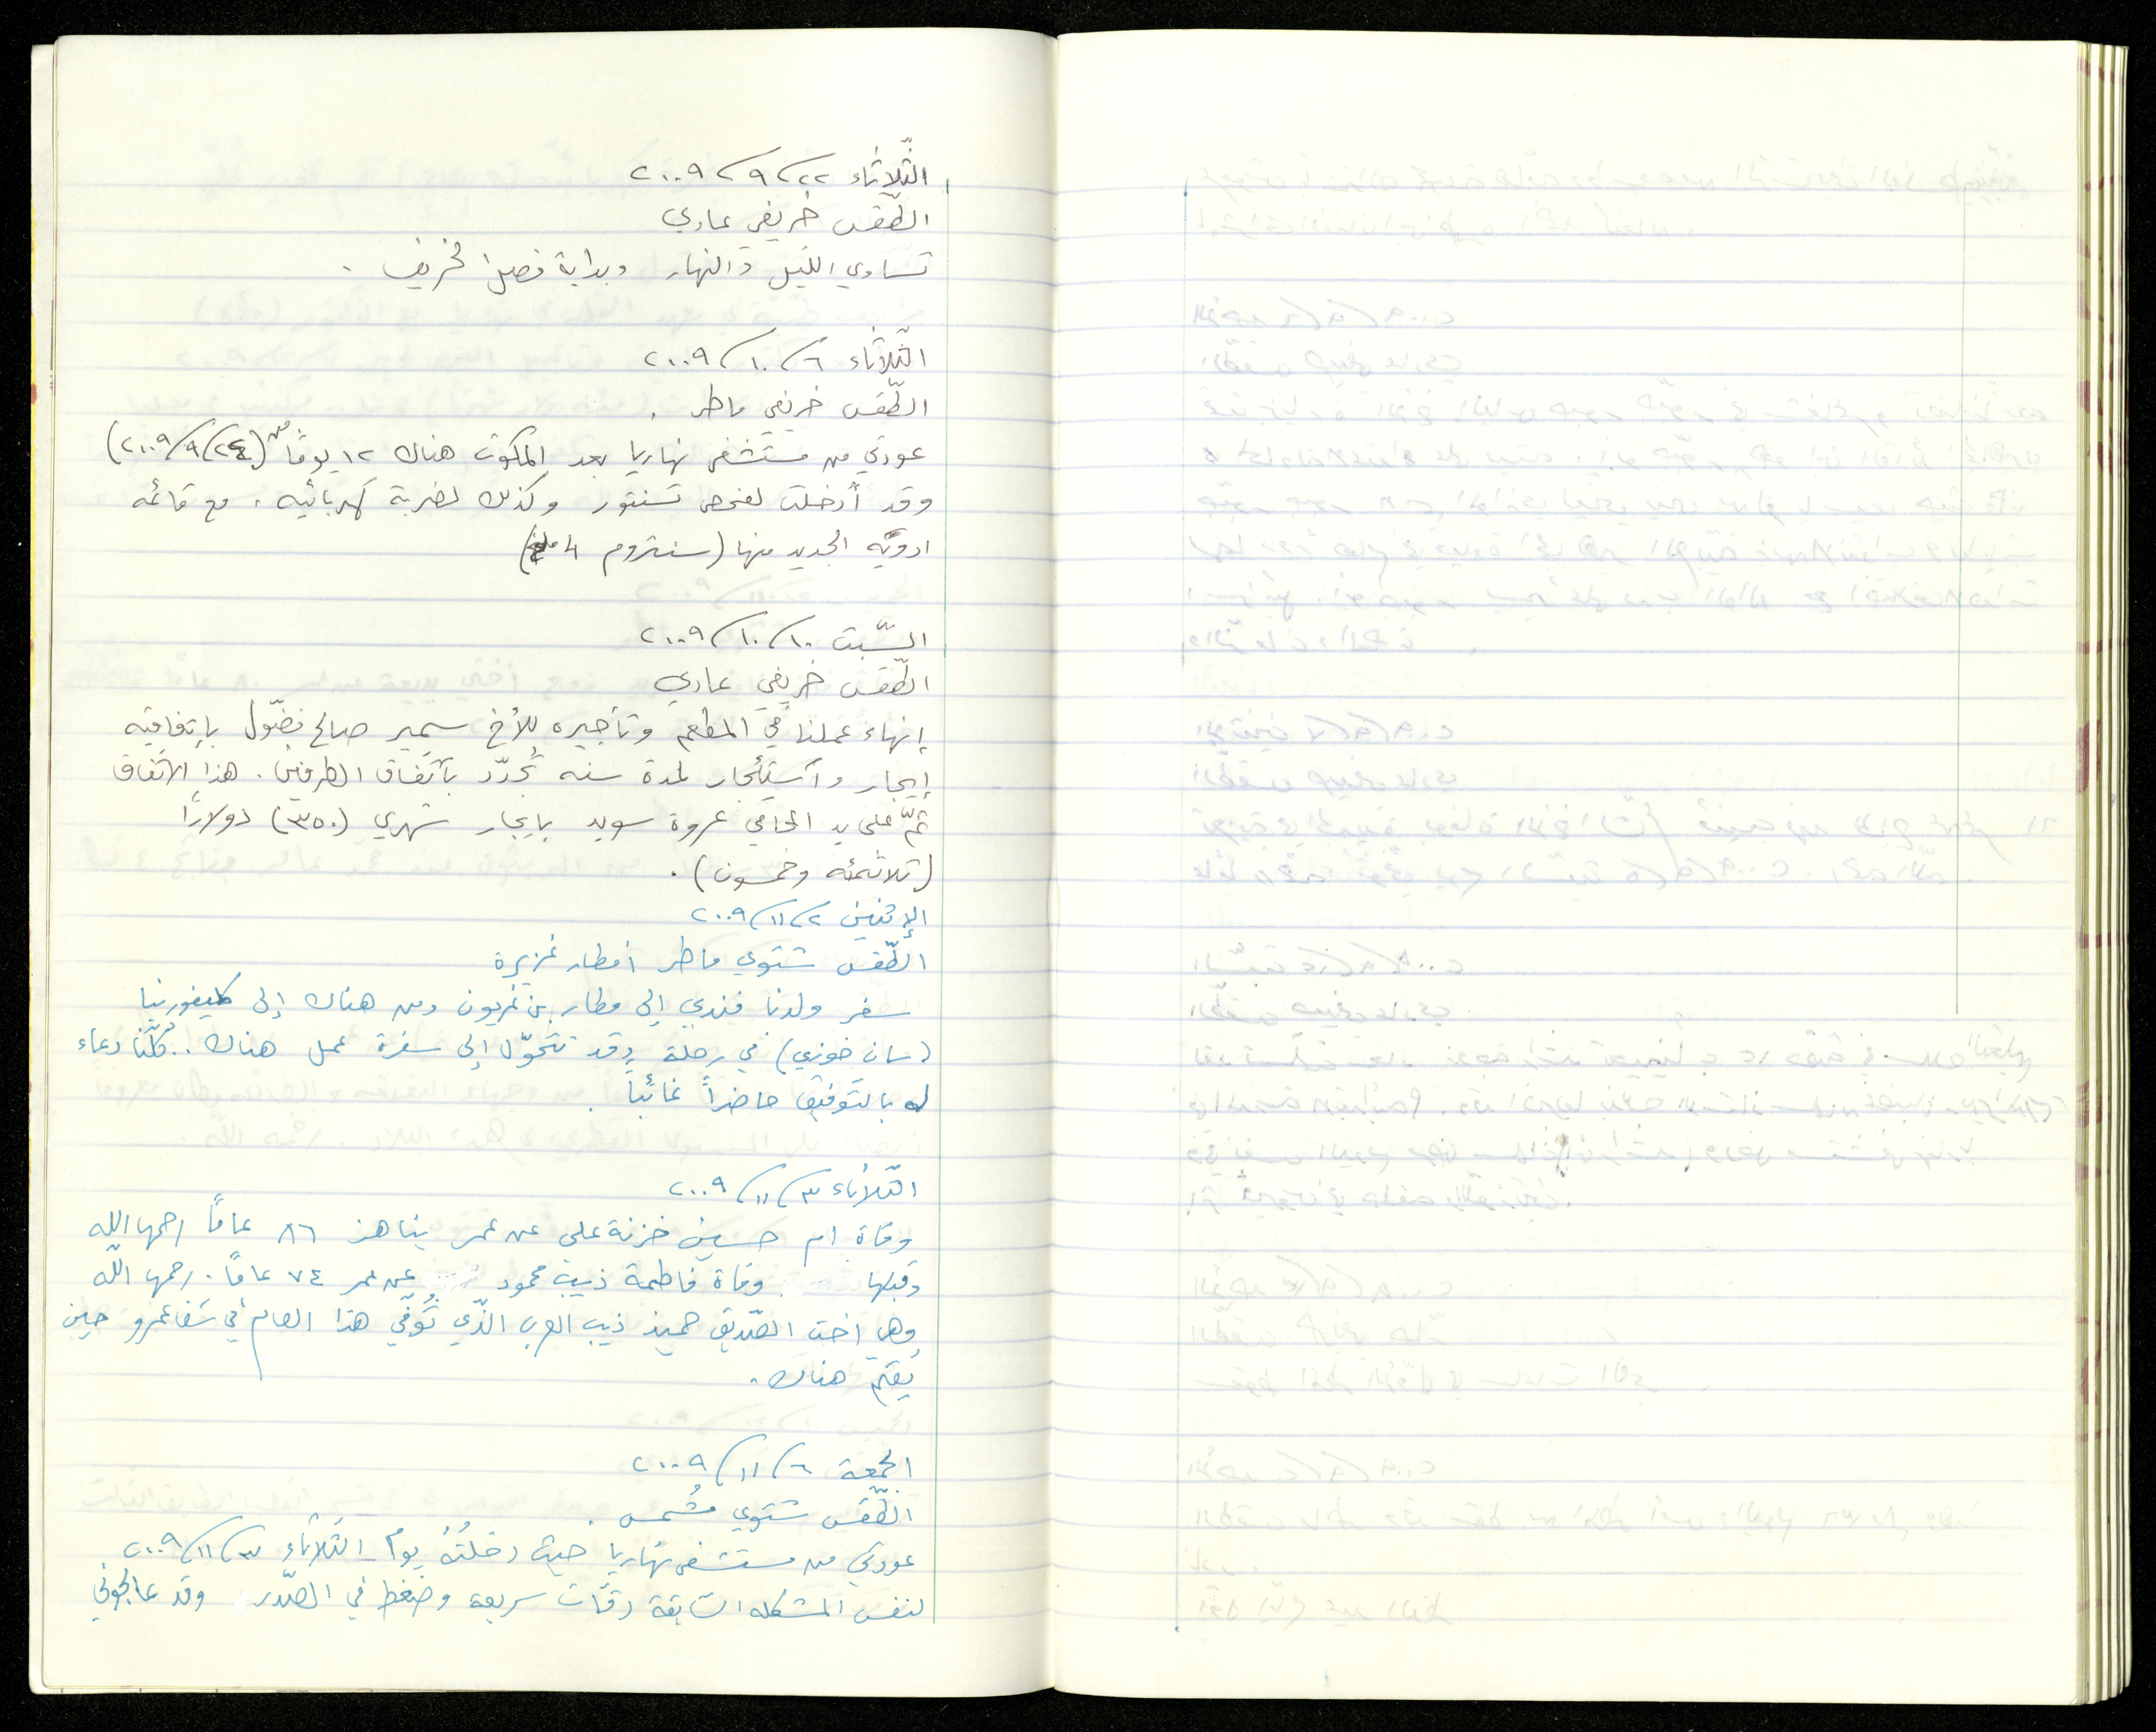 الثّلاثاء ٢٢/٩/٢٠٠٩
الطّقس خريفي عادي
تساوي الليل والنهار وبداية فصل الخريف .
الثّلاثاء ٦/١٠/٢٠٠٩
الطّقس خريفي ماطر .
عودتي من مستشفى نهاريا بعد المكوث هناك ١٢ يومًا من (٢٤/٩/٢٠٠٩)
وقد أُدخلت لفحص تسنتور وكذلك لضربة كهربائيه . مع قائمه
ادويّه الجديد منها (سنتروم
السّبت ١٠/١٠/٢٠٠٩
الطّقس خريفي عادي
إنهاء عملنا في المطعم وتأجيره للأخ سمير صالح فضّول بإتفاقيه
إيجار واستئجار لمدة سنه تُجدّد بآتفاق الطرفين . هذا الاتفاق
تمّ على يد المحامي عروة سويد بايجار شهري (٣٥٠) دولارًا
(ثلاثمئه وخمسون) .
الإثنين ٢/١١/٢٠٠٩
الطّقس شتوي ماطر أمطار غزيرة
سفر ولدنا فندي إلى مطار بن غريون ومن هناك إلى كليفورنيا
(سان خوزي) في رحلة وقد تتحوّل إلى سفرة عمل هناك .. كلّنا دعاء
له بالتّوفيق حاضراً غائباً .
الثّلاثاء ٣/١١/٢٠٠٩
وفاة ام حسين خزنة علي عن عمر يناهز ٨٦ عاماً رحمها الله
وقبلها وفاة فاطمة ذيب محمود عن عمر ٧٤ عاماً . رحمها اللّه
وهي اخت الصّديق حميد ذيب العرب الذّي تُوفّي هذا العام في شفاعمرو حين
يُقيم هناك .
الجمعة ٦/١١/٢٠٠٩
الطّقس شتوي مُشمس .
عودتي من مستشفى نهاريا حيث دخلتُهُ يوم الثّلاثاء ٣/١١/٢٠٠٩
لنفس المشكله السّابقة دقّات سريعة وضغط في الصّدر وقد عالجوني